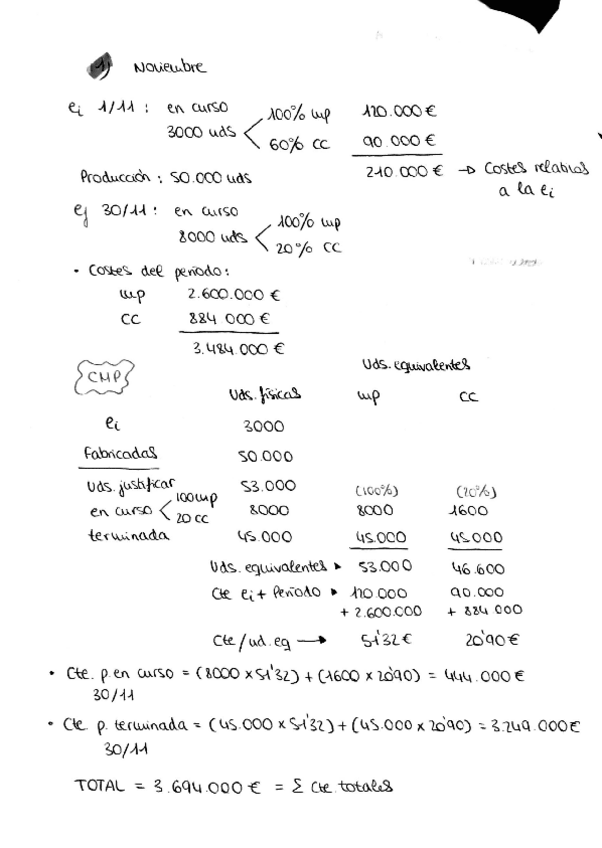 1) Noviembre
ei 1/11 : en curso 100% mp 120.000 €
3000 uds 60% CC 90.000 €
Producción : 50.000 uds 210.000 € → Costes relativos
a la ei
ej 30/11 : en curso 100% mp
8000 uds 20% CC
• Costes del período :
mp 2.600.000 €
CC 884 000 €
3.484.000 €
CMP Uds. equivalentes
Uds. físicas mp CC
ei 3000
Fabricadas 50.000
Uds. justificar 53.000 (100%) (20%)
en curso 100 mp 8000 8000 1600
20 cc
terminada 45.000 45.000 45.000
Uds. equivalentes ► 53.000 46.600
Cte ei + Período ► 120.000 90.000
+ 2.600.000 + 884 000
Cte/ud.eq → 51'32 € 20'90 €
• Cte. p. en curso = (8000 x 51'32) + (1600 x 20'90) = 444.000 €
30/11
• Cte p. terminada = (45.000 x 51'32) + (45.000 x 20'90) = 3.249.000 €
30/11
TOTAL = 3.694.000 € = Σ Cte. totales